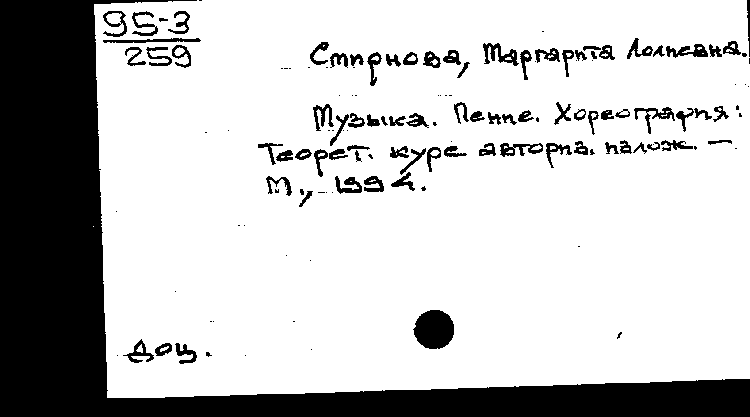 95-3
259
Смирнова, Маргарита
Музыка. Пение. Хореография:
Теорет. курс авториз. излож. —
М., 1994.
Доц.